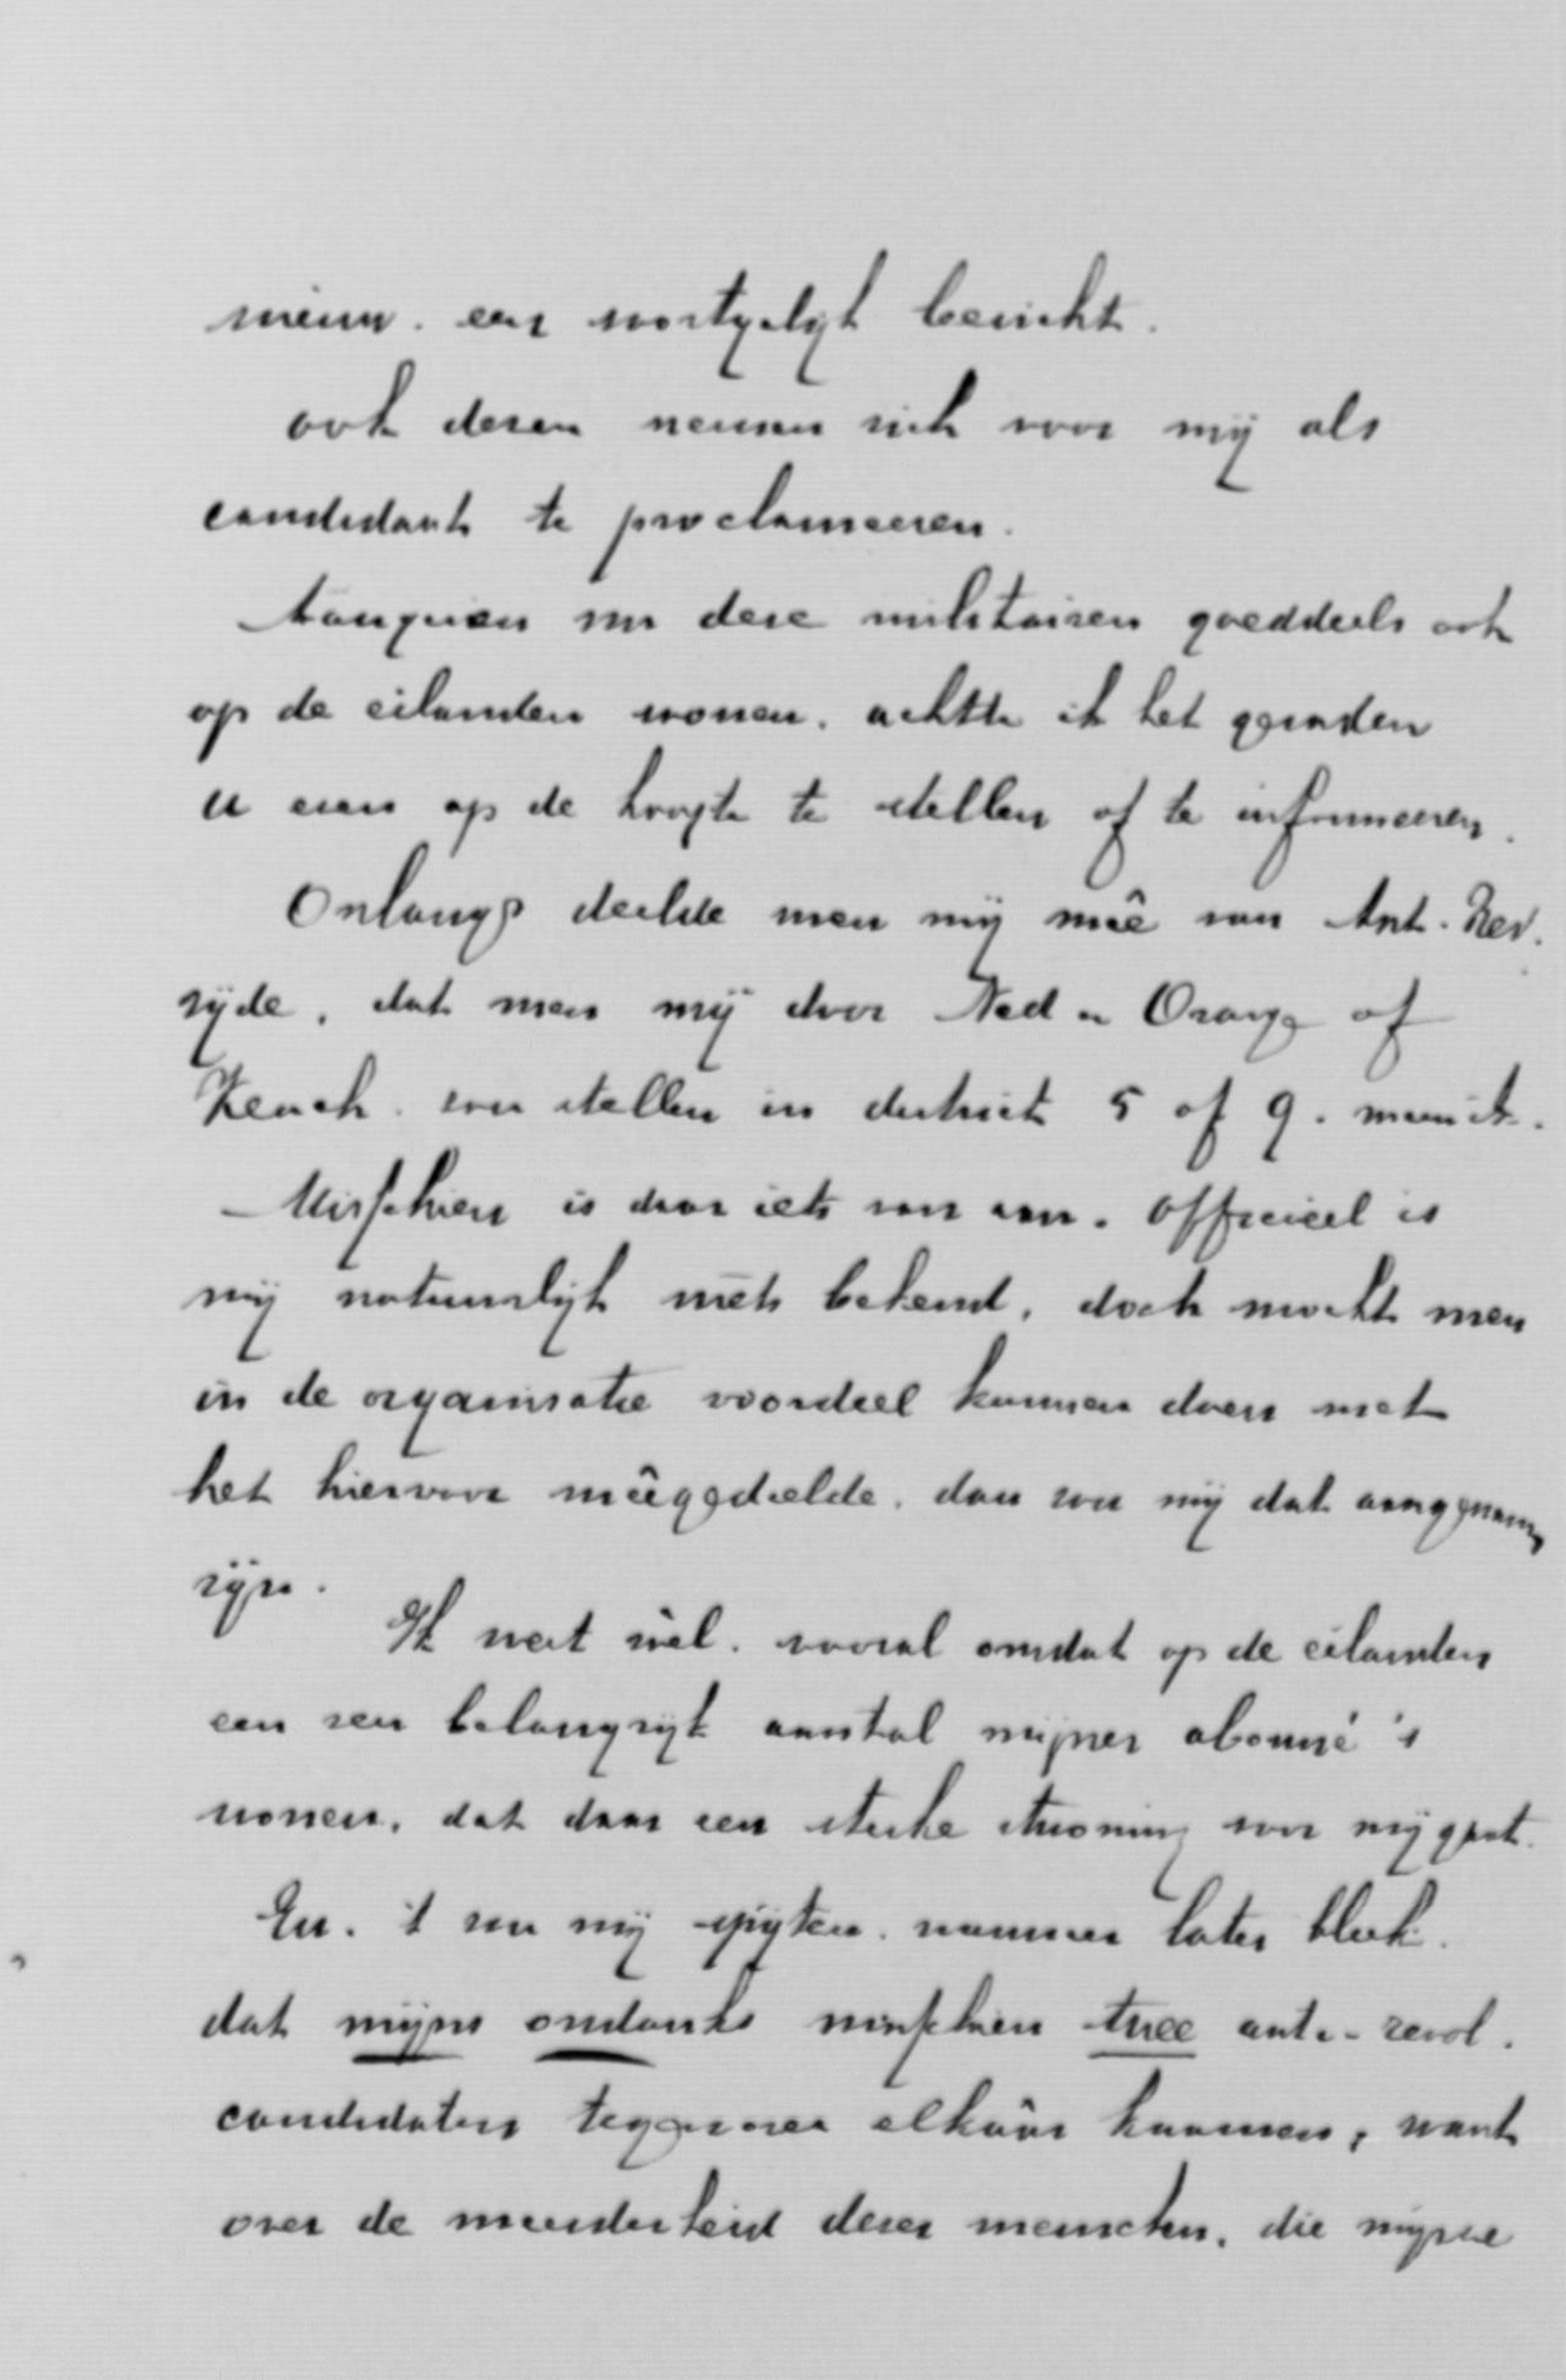 nieuw. een soortgelijk bericht.
ook dezen nemen zich voor mij als
candidaat te proclameeren.
Aangezien nu deze militairen goeddeels ook
op de eilanden wonen. achtte ik het geraden
u even op de hoogte te stellen of te informeeren.
Onlangs deelde men mij meê van Ant. Rev.
zijde, dat men mij door Ned en Oranje of
zou stellen in district 5 of 9.
Misschien is daar iets van aan. Officieel is
mij natuurlijk niets bekend, doch mocht men
in de organisatie voordeel kunnen doen met
het hiervoor meêgedeelde, dan zou mij dat aangenaam
zijn.
Ik weet wel. vooral omdat op de eilanden
een zeer belangrijk aantal mijner abonné's
wonen, dat daar een sterke strooming voor mij gaat.
En. 't zou mij spijten. wanneer later bleek.
dat mijns ondanks misschien twee anti-revol.
candidaten tegenover elkaâr kwamen, want
over de meerderheid dezer menschen, die mijne